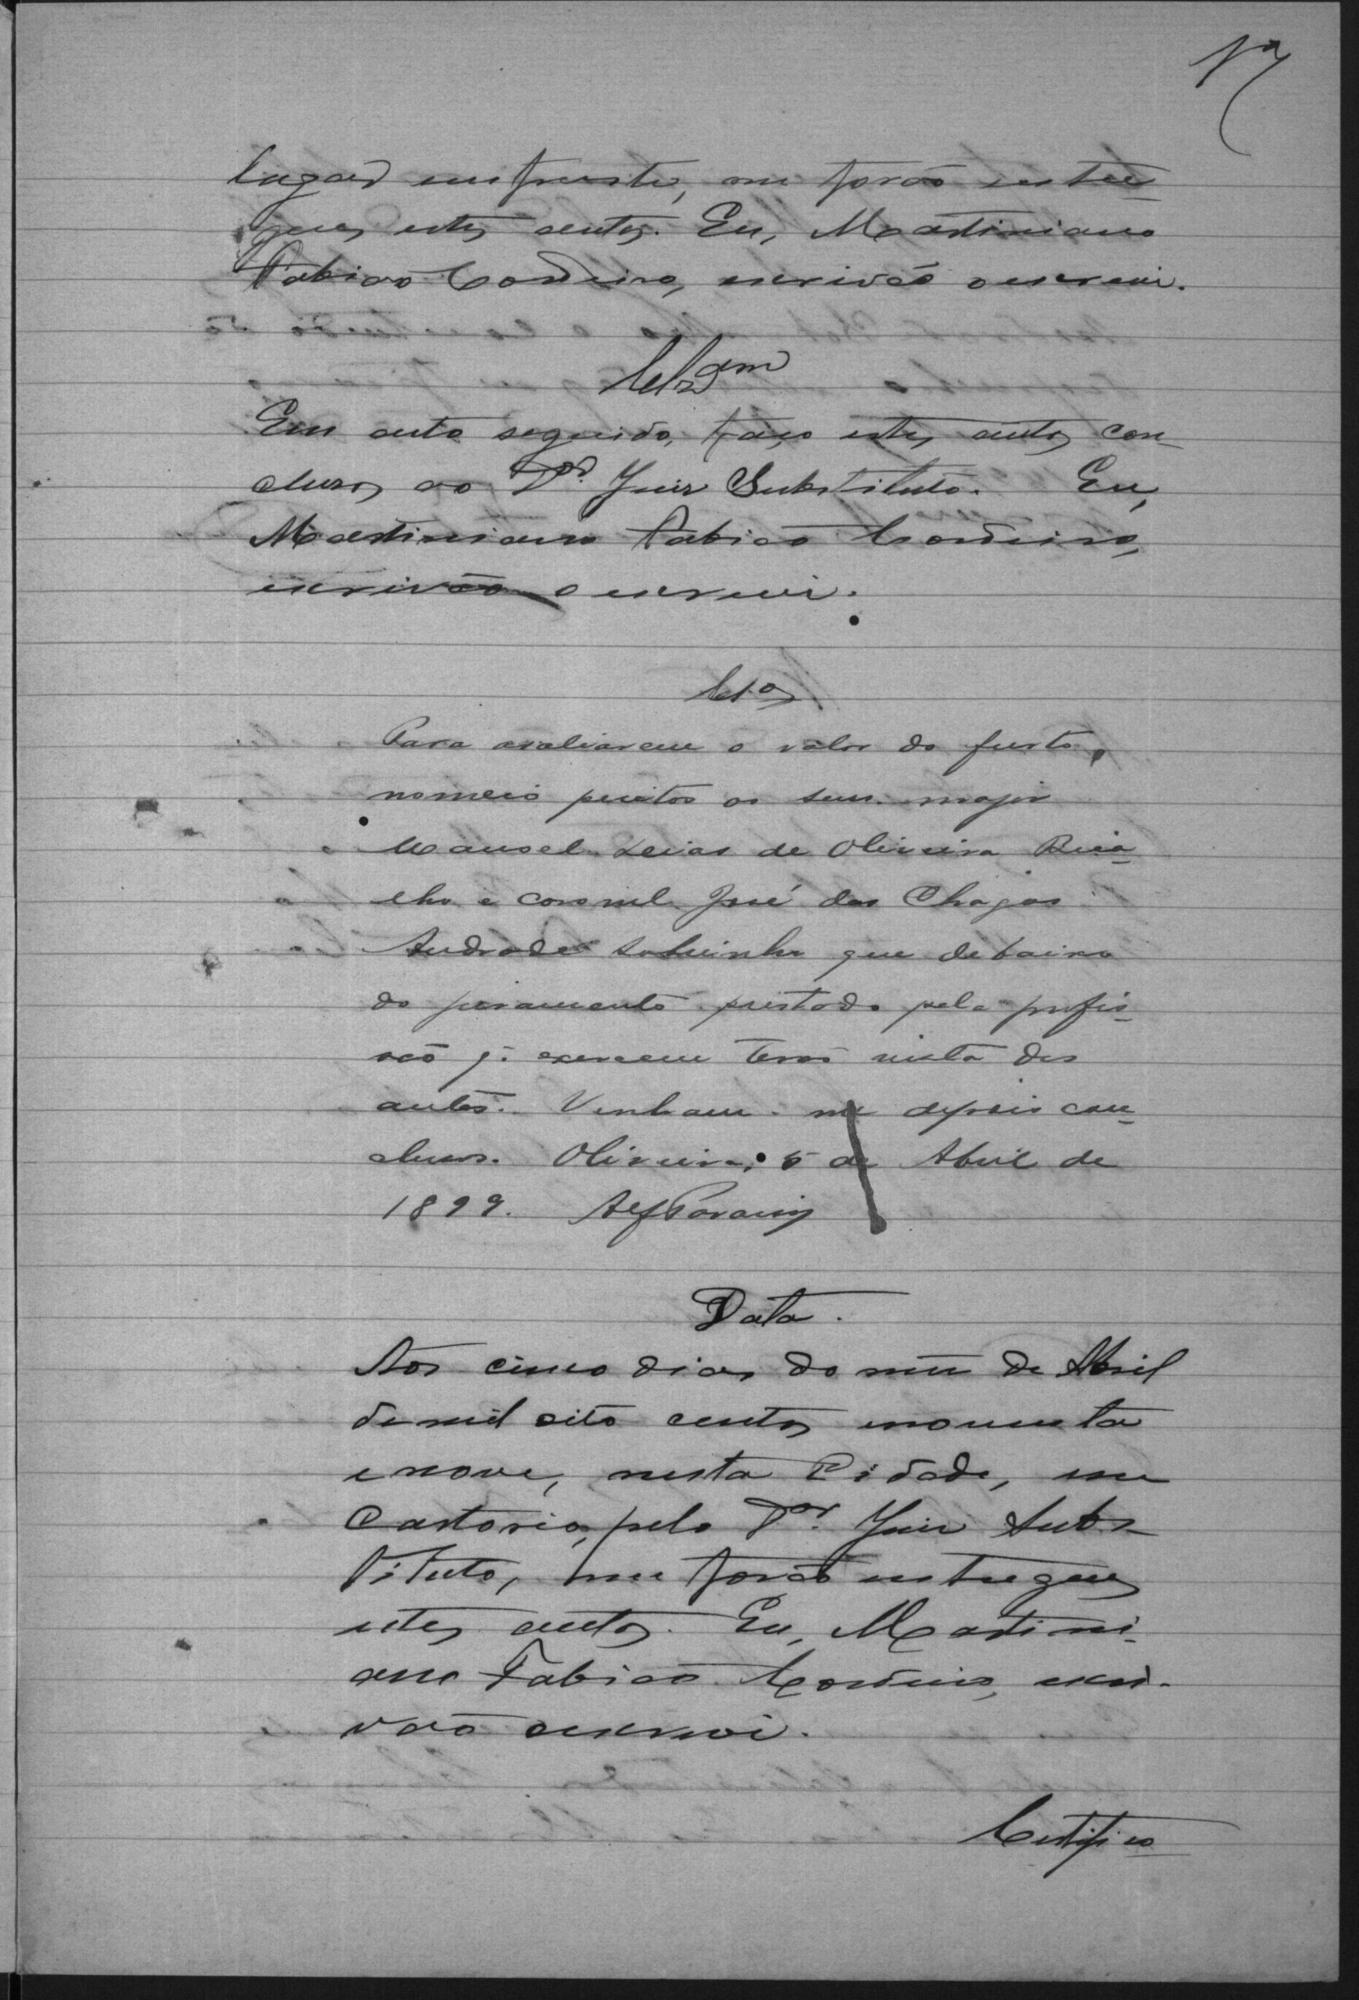 17
lugar em frente, me forão entre-
gues estes autos. Eu, Martiniano
Fabião Cordeiro, escrivão o escrevi.
Clzam
Em acto seguido, faço estes autos con-
clusos ao Dor. Juiz Substituto. Eu,
Martiniano Fabião Cordeiro,
escrivão o escrevi.
Clos
Para avaliarem o valor do furto,
nomeio peritos os snrs. major
Manoel de Oliveira
e coronel José das Chagas
Andrade Sobrinho que debaixo
do juramento prestado pela profis-
são q. exercem terão vista dos
autos. Venham-me depois con-
clusos. Oliveira, 5 de Abril de
1899.
Data.
Aos cinco dias do mez de Abril
de mil oito centos e noventa
e nove, nesta Cidade, em
Cartorio, pelo Dor. Juiz Subs-
tituto, me forão entregues
estes autos. Eu, Martini-
ano Fabião Cordeiro, escri-
vão o escrevi.
Certifico